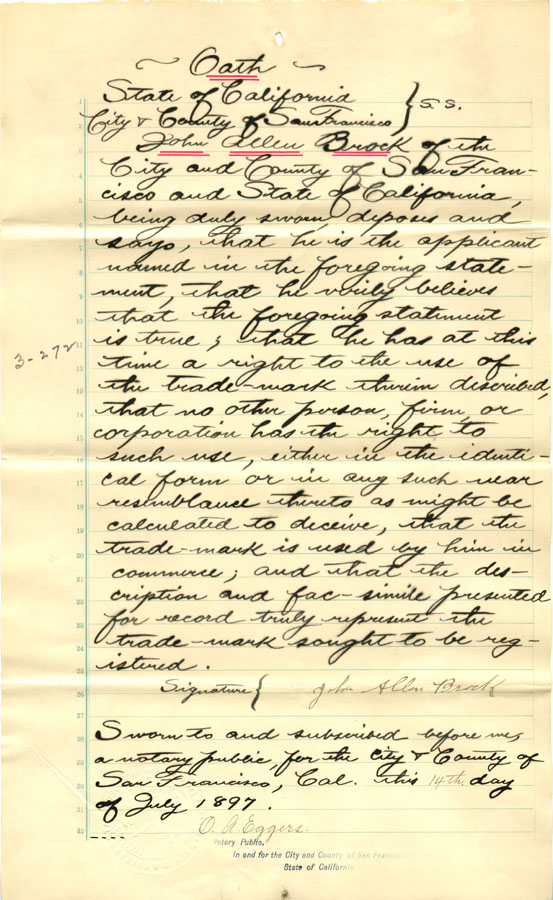 ~ Oath ~
State of California } S.S.
City & County of San Francisco
John Allen Brock of the
City and County of San Fran-
cisco and State of California,
being duly sworn, deposes and
says, that he is the applicant
named in the foregoing state-
ment, that he verily believes
that the foregoing statement
is true; that he has at this
3-272
time a right to the use of
the trade-mark therein described,
that no other person, firm, or
corporation has the right to
such use, either in the identi-
cal form or in any such near
resemblance thereto as might be
calculated to deceive, that the
trade-mark is used by him in
commerce; and that the des-
cription and fac-simile presented
for record truly represent the
trade-mark sought to be reg-
istered.
Signature { John Allen Brock
Sworn to and subscribed before me,
a notary public, for the City & County of
San Francisco, Cal. this 14th. day
of July 1897.
O. A. Eggers.
Notary Public,
In and for the City and County of San Francisco
State of California